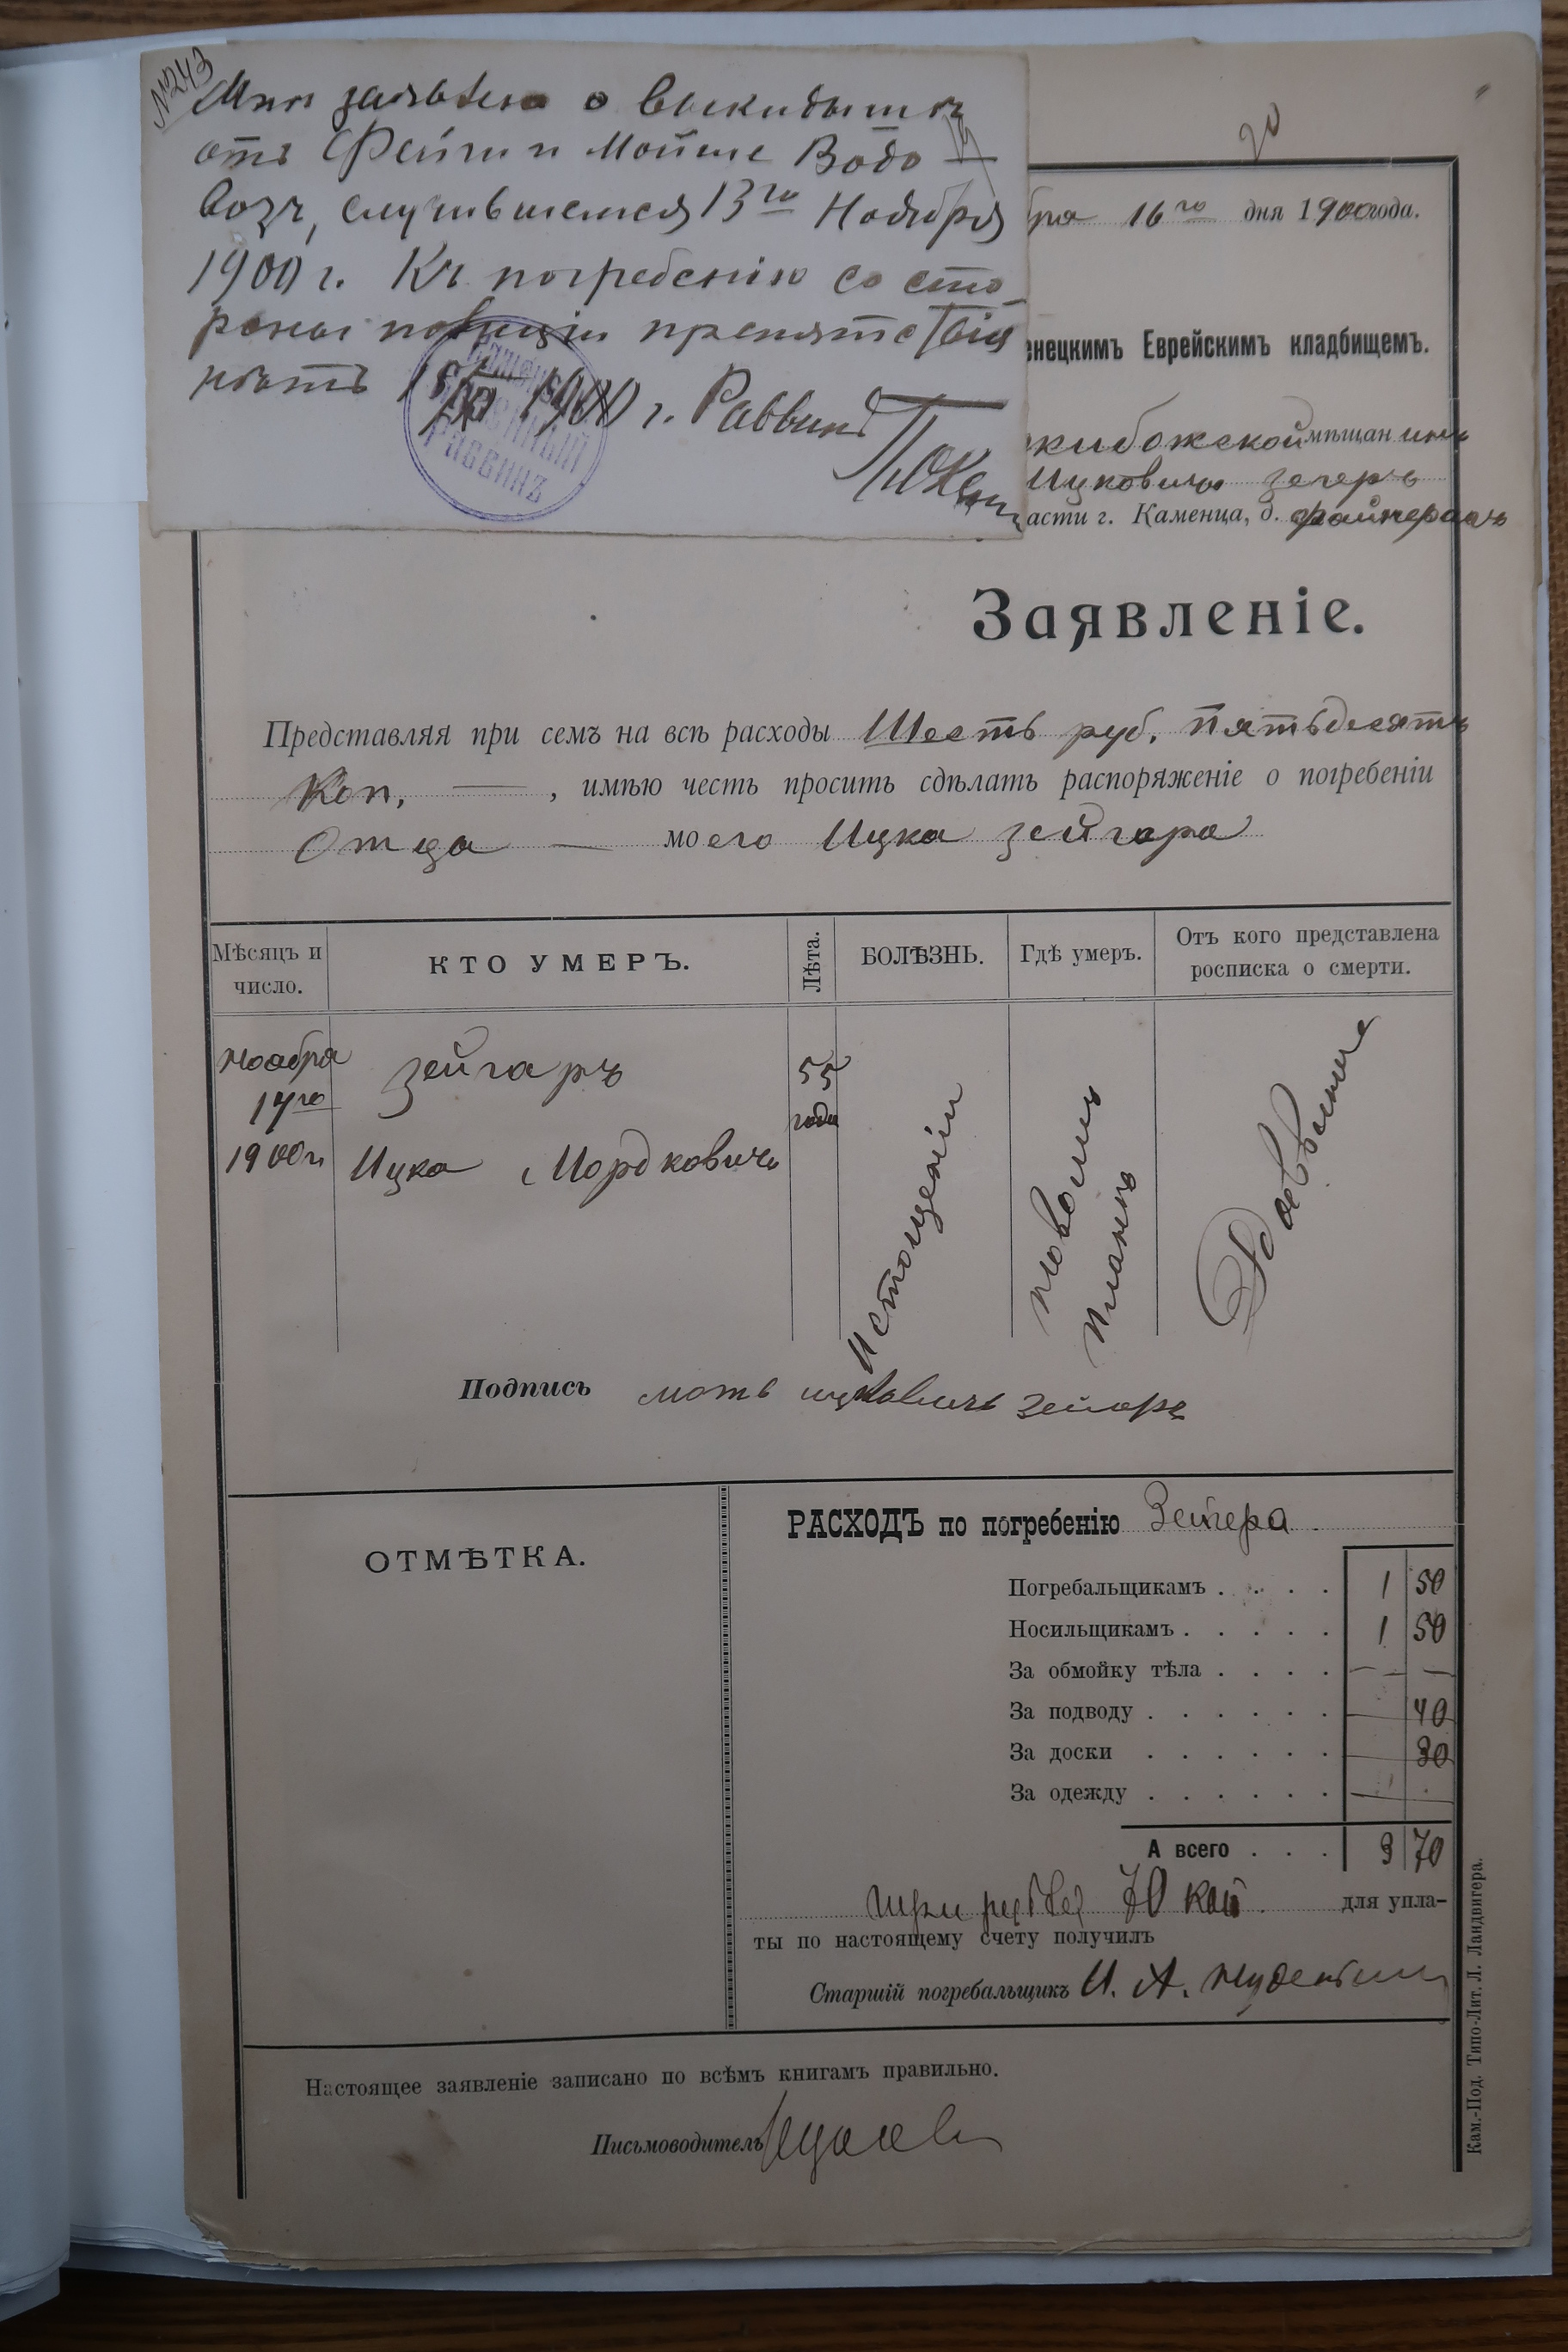 №243
Мнѣ заявлено о выкидышѣ
отъ Фейги и Мойше Водо-
возъ, случившемся 13го Ноября
1900 г. Къ погребенію со сто-
роны полиціи препятствія
нѣтъ 1900 г. Раввинъ
РАВВИНЪ
20
бря 16го дня 1900 года.
енецкимъ Еврейскимъ кладбищемъ.
жибожской мѣщанинъ
Ицковичъ Зегеръ
асти г. Каменца, д.
Заявленіе.
Представляя при семъ на всѣ расходы Шесть руб. пятьдесятъ
Коп. — , имѣю честь просить сдѣлать распоряженіе о погребеніи
Отца — моего Ицка Зейгара
Мѣсяцъ и число.
КТО УМЕРЪ.
Лѣта.
БОЛѢЗНЬ.
Гдѣ умеръ.
Отъ кого представлена росписка о смерти.
Ноября
14го
1900 г.
Зейгаръ
Ицка Мордковичъ
55
года
Истощеніи
Новомъ
планѣ
Раввина
Подпись мотъ ицковичъ зейгаръ
ОТМѢТКА.
РАСХОДЪ по погребенію Зейгера
Погребальщикамъ . . . . 1 50
Носильщикамъ . . . . . 1 50
За обмойку тѣла . . . . — —
За подводу . . . . . . — 40
За доски . . . . . . — 30
За одежду . . . . . . — —
А всего . . . 3 70
три рубля 70 коп. для упла-
ты по настоящему счету получилъ
Старшій погребальщикъ И. А.
Настоящее заявленіе записано по всѣмъ книгамъ правильно.
Письмоводитель
Кам.-Под. Типо-Лит. Л. Ландвигера.